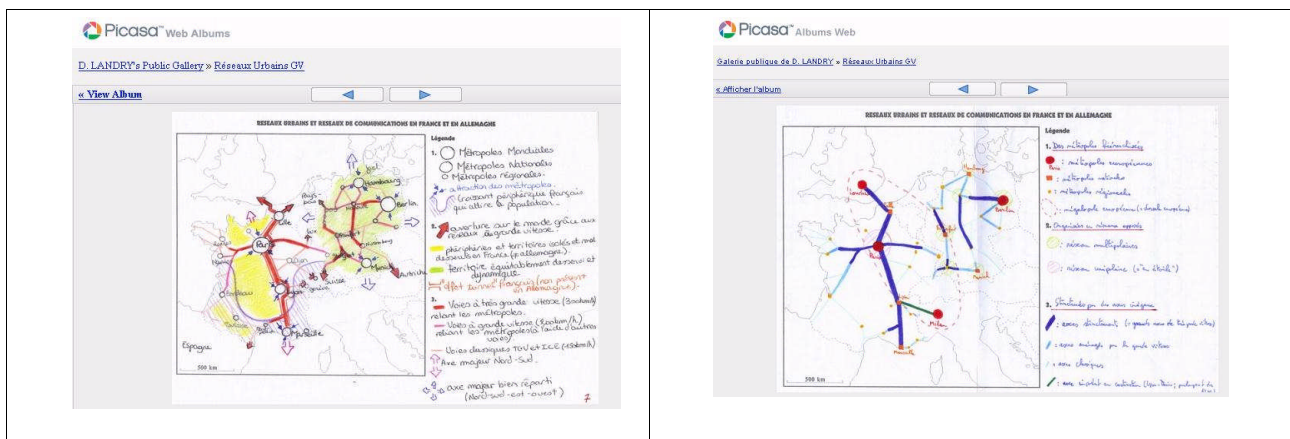 Picasa™ Web Albums
D. LANDRY's Public Gallery » Réseaux Urbains GV
« View Album
RESEAUX URBAINS ET RESEAUX DE COMMUNICATIONS EN FRANCE ET EN ALLEMAGNE
Légende
1. Métropoles Mondiales
Métropoles Nationales
Métropoles régionales.
attraction des métropoles.
Croissant périphérique français
qui attire la population...
2. ouverture sur le monde grâce aux
réseaux à grande vitesse.
périphéries et territoires isolés et mal
desservis en France (p. allemagne).
territoire équitablement desservi et
dynamique.
"effet tunnel" français (non présent
en Allemagne).
3.
Voies à très grande vitesse (300km/h)
reliant les métropoles.
Voies à grande vitesse (200km/h)
reliant les métropoles à l'aide d'autres
voies)
Voies classiques TGV et ICE
Axe majeur Nord-Sud.
axe majeur bien réparti
(Nord-sud-est-ouest)
Hambourg
Berlin
Lille
Paris
Munich
Autriche
Suisse
Genève
Lyon
Bordeaux
Marseille
Espagne
500 km
7
Picasa™ Albums Web
Galerie publique de D. LANDRY » Réseaux Urbains GV
« Afficher l'album
RESEAUX URBAINS ET RESEAUX DE COMMUNICATIONS EN FRANCE ET EN ALLEMAGNE
Légende
1. Des métropoles hiérarchisées
: métropoles européennes
: métropoles nationales
: métropoles régionales
: mégalopole européenne
2. Organisées en réseaux opposés
: réseau multipolaire
: réseau unipolaire ("en étoile")
3. Structurées par des axes
: axes structurants
: axes aménagés pour la grande vitesse
: axes classiques
Londres
Hambourg
Berlin
Paris
Milan
Marseille
500 km